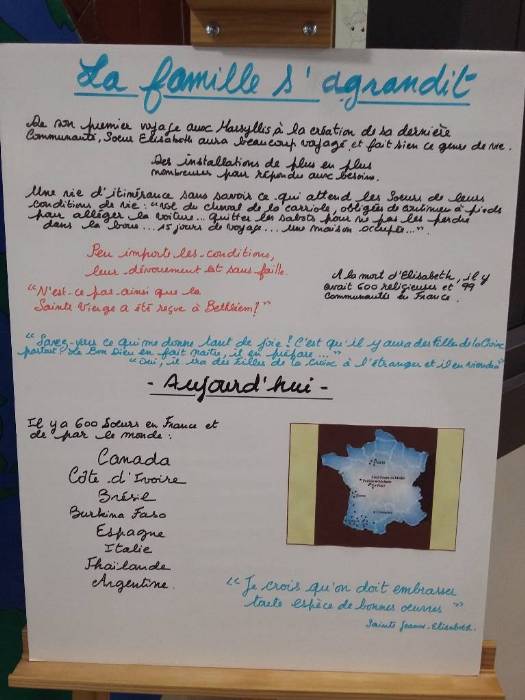 La famille s'agrandit
De son premier voyage aux Marsyllis à la création de sa dernière
Communauté, Soeur Elisabeth aura beaucoup voyagé et fait bien ce genre de vie.
Des installations de plus en plus
nombreuses pour répondre aux besoins.
Une vie d'itinérance sans savoir ce qui attend les Soeurs de leurs
conditions de vie : "vol du cheval de la carriole, obligées de continuer à pieds
pour alléger la voiture... quitter les sabots pour ne pas les perdre
dans la boue... 15 jours de voyage... une maison occupée...".
Peu importe les conditions,
leur dévouement est sans faille.
"N'est-ce pas ainsi que la
Sainte Vierge a été reçue à Bethléem!"
A la mort d'Elisabeth, il y
avait 600 religieuses et 99
Communautés en France.
"Savez-vous ce qui me donne tant de joie! C'est qu'il y aura des Filles de la Croix
partout! Le Bon Dieu en fait naître, il en prépare..."
"Oui, il ira des Filles de la Croix à l'étranger et il en viendra"
- Aujourd'hui -
Il y a 600 Soeurs en France et
de par le monde :
Canada
Côte d'Ivoire
Brésil
Burkina Faso
Espagne
Italie
Thaïlande
Argentine
"Je crois qu'on doit embrasser
toute espèce de bonnes œuvres"
Sainte Jeanne-Elisabeth.